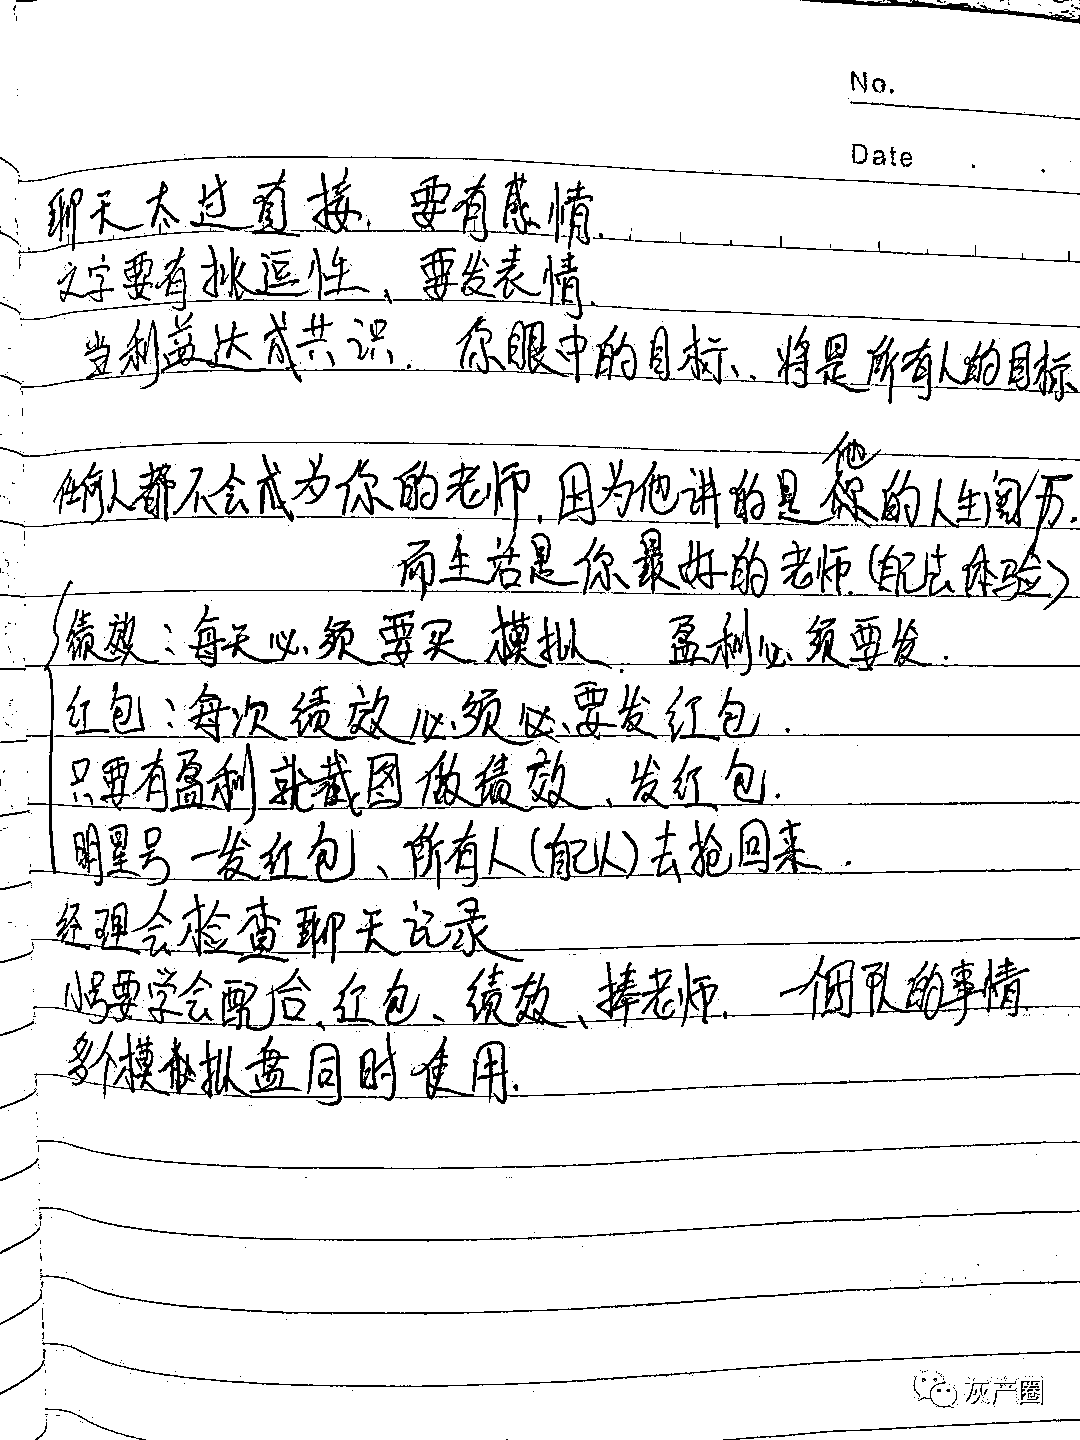 No.
Date
聊天太过直接、要有感情.
文字要有挑逗性、要发表情.
当利益达成共识. 你眼中的目标、将是所有人的目标
他
任何人都不会成为你的老师.因为他讲的是你的人生阅历.
而生活是你最好的老师.(自己去体验)
绩效:每天必须要买模拟 盈利必须要发.
红包:每次绩效必须必要发红包.
只要有盈利就截图做绩效、发红包.
明星号一发红包、所有人(自己人)去抢回来.
经理会检查聊天记录
小号要学会配合、红包、绩效、捧老师. 一个团队的事情
多个模拟盘同时使用.
灰产圈